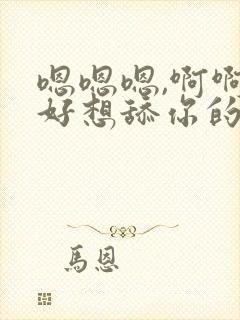 嗯嗯嗯,啊啊
好想舔你的
馬恩